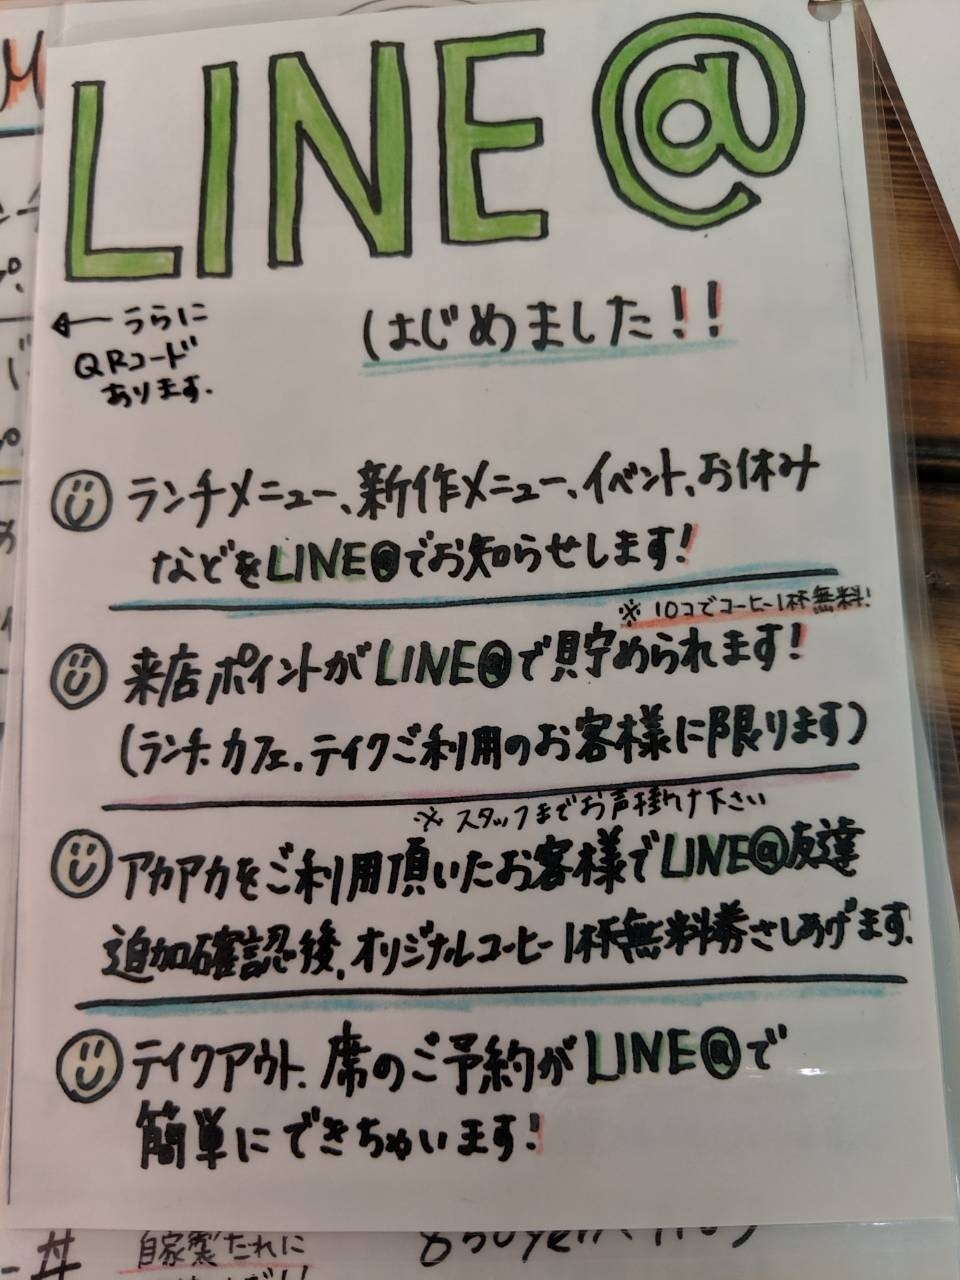 LINE@
はじめました!!
← うらに
QRコード
あります.
ランチメニュー、新作メニュー、イベント、お休み
などをLINE@でお知らせします!
※10コでコーヒー1杯無料!
来店ポイントがLINE@で貯められます!
(ランチ.カフェ.テイクご利用のお客様に限ります)
※スタッフまでお声掛け下さい
アカアカをご利用頂いたお客様でLINE@友達
追加確認後.オリジナルコーヒー1杯無料券さしあげます.
テイクアウト.席のご予約がLINE@で
簡単にできちゃいます!
丼
自家製たれに